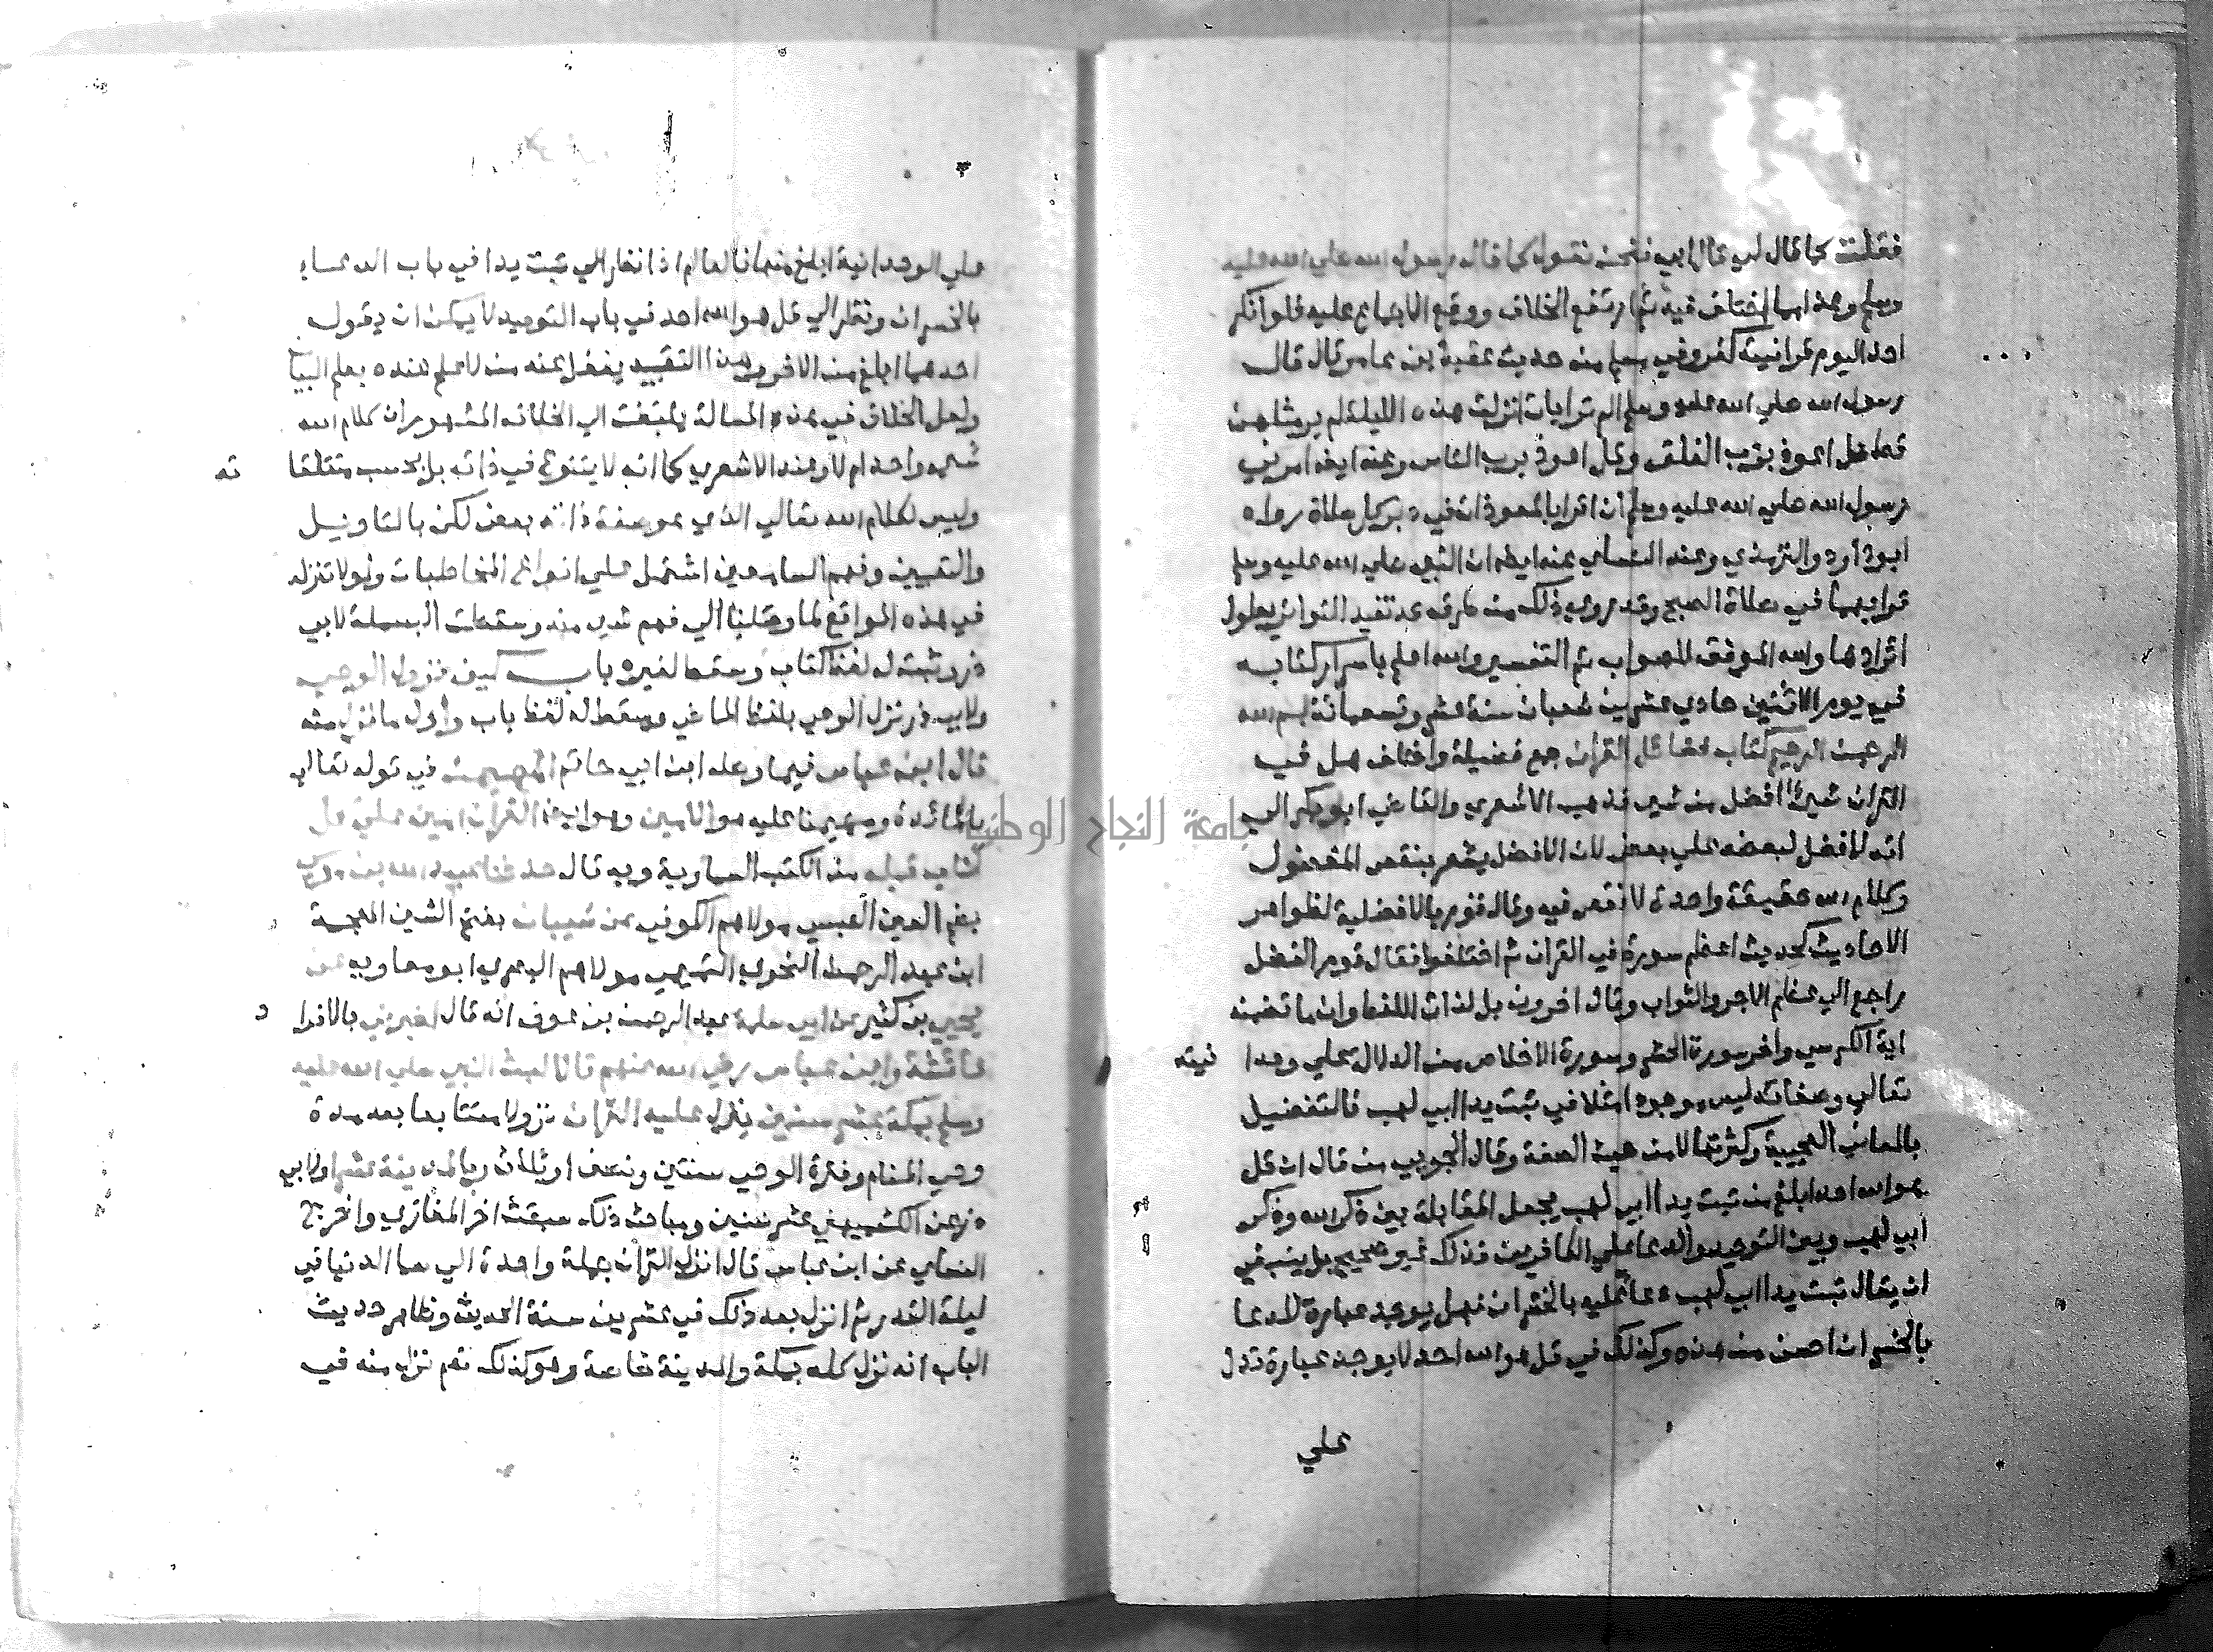 فقلت كما قال لي قال ابي فنحن نقول كما قال رسول الله صلي الله عليه
وسلم وهذا مما اختلف فيه ثم ارتفع الخلاف ووقع الاجماع عليه فلو انكر
احد اليوم قرانيته كفر وفي مسلم من حديث عقبة بن عامر قال قال
رسول الله صلي الله عليه وسلم الم تر ايات انزلت هذه الليلة لم ير مثلهن
قط قل اعوذ برب الفلق وقل اعوذ برب الناس وعنه ايضا امرني
رسول الله صلي الله عليه وسلم ان اقرا بالمعوذات في دبر كل صلاة رواه
ابو داود والترمذي وعند النساي عنه ايضا ان النبي صلي الله عليه وسلم
قرا بهما في صلاة الصبح وقد روي ذلك من طرق عد تفيد التواتر يطول
ايرادها والله الموفق للصواب تم التفسير والله اعلم باسرار كتابه
في يوم الاثنين حادي عشرين شعبان سنة عشر وتسعمائة بسم الله
الرحمن الرحيم كتاب فضائل القران جمع فضيلة واختلف هل في
القران شيئا افضل من شي فذهب الاشعري والقاضي ابو بكر الي
انه لا فضل لبعضه علي بعض لان الافضل يشعر بنقص المفضول
وكلام الله حقيقة واحدة لا نقص فيه وقال قوم بالافضلية لظواهر
الاحاديث كحديث اعظم سورة في القران ثم اختلفوا فقال قوم الفضل
راجع الي عظم الاجر والثواب وقال اخرون بل لذات اللفظ وان ما تضمنه
اية الكرسي واخر سورة الحشر وسورة الاخلاص من الدلالة علي وحدا نيته
تعالي وصفاته ليس موجودا مثلا في تبت يدا ابي لهب فالتفضيل
بالمعاني العجيبة وكثرتها لا من حيث الصفة وقال الجويني من قال ان قل
هو الله احد ابلغ من تبت يدا ابي لهب يجعل المقابلة بين ذكر الله وذكر
ابي لهب وبين التوحيد والدعا علي الكافرين فذلك غير صحيح بل ينبغي
ان يقال تبت يدا ابي لهب دعا عليه بالخسران فهل يوجد عبارة للدعا
بالخسران احسن من هذه وكذلك في قل هو الله احد لا يوجد عبارة تدل
علي
علي الوحدانية ابلغ منها فالعالم اذا نظر الي تبت يدا في باب الدعاء
بالخسران ونظر الي قل هو الله احد في باب التوحيد لا يمكن ان يقول
احدهما ابلغ من الاخر وهذا التقييد يغفل عنه من لا علم عنده بعلم البيان
ولعل الخلاف في هذه المسالة يلتفت الي الخلاف المشهور ان كلام الله
شي واحد ام لا وعند الاشعري كما انه لا يتنوع في ذاته بل بحسب متعلقا ته
وليس لكلام الله تعالي الذي هو صفة ذاته بعض لكن بالتاويل
والتعبير وفهم السامعين اشتمل علي انواع المخاطبات ولولا تنزله
في هذه المواقع لما وصلنا الي فهم شي منه وسقطت البسملة لابي
ذر وثبت له لفظ كتاب وسقط لغيره باب كيف نزول الوحي
ولابي ذر نزل الوحي بلفظ الماضي وسقط له لفظ باب واول ما نزل منه
قال ابن عباس فيما وصله ابن ابي حاتم المهيمن في قوله تعالي
بالمائدة ومهيمنا عليه هو الامين وهو ايضا القران امين علي كل
كتاب قبله من الكتب السماوية وبه قال حدثنا عبيد الله بن موسي
بضم العين العبسي مولاهم الكوفي عن شيبان بفتح الشين المعجمة
ابن عبد الرحمن النحوي التميمي مولاهم البصري ابو معاويه عن
يحيي بن كثير عن ابي سلمة عبد الرحمن بن عوف انه قال اخبرني بالافرا د
عائشة وابن عباس رضي الله عنهم قالا لبث النبي صلي الله عليه
وسلم بمكة عشر سنين ينزل عليه القران نزولا متتابعا بعد مدة
وحي المنام وفترة الوحي سنتين ونصف او ثلاث وبالمدينة عشرا ولابي
ذر عن الكشميهني عشر سنين ومباحث ذلك سبقت اخر المغازي واخرج
النساي عن ابن عباس قال انزل القران جملة واحدة الي سما الدنيا في
ليلة القدر ثم انزل بعد ذلك في عشرين سنة الحديث وظاهر حديث
الباب انه نزل كله بمكة والمدينة خاصة وهو كذلك نعم نزل منه في
جامعة النجاح الوطنية